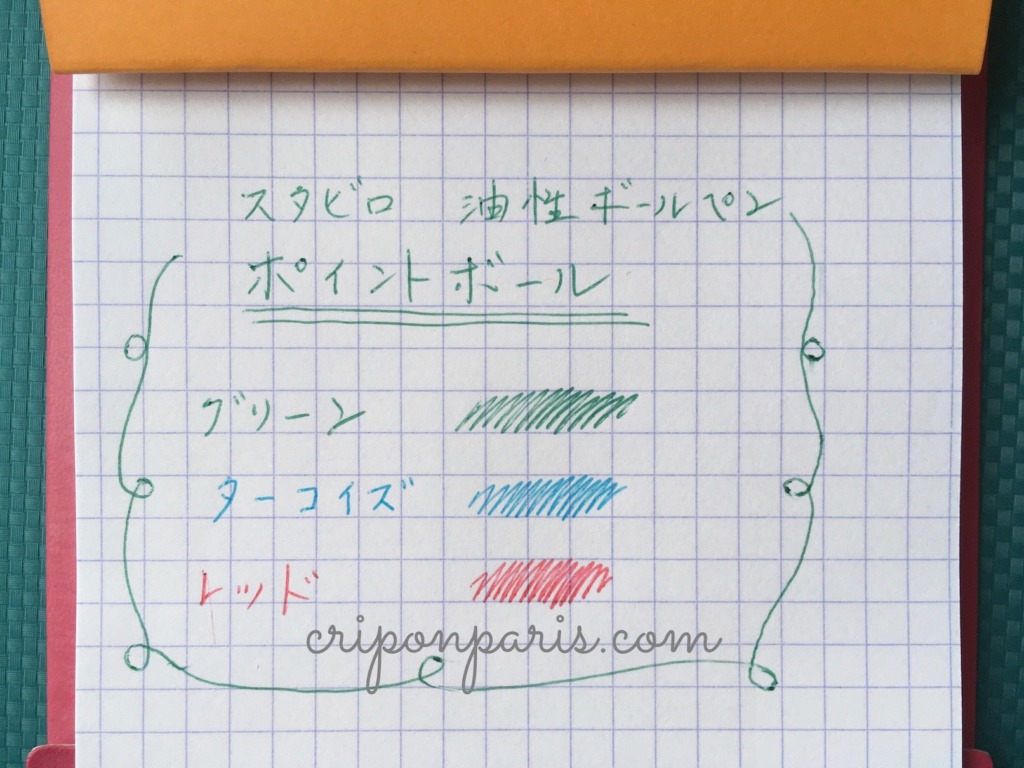 スタビロ 油性ボールペン
ポイントボール
グリーン
ターコイズ
トッド
criponparis.com